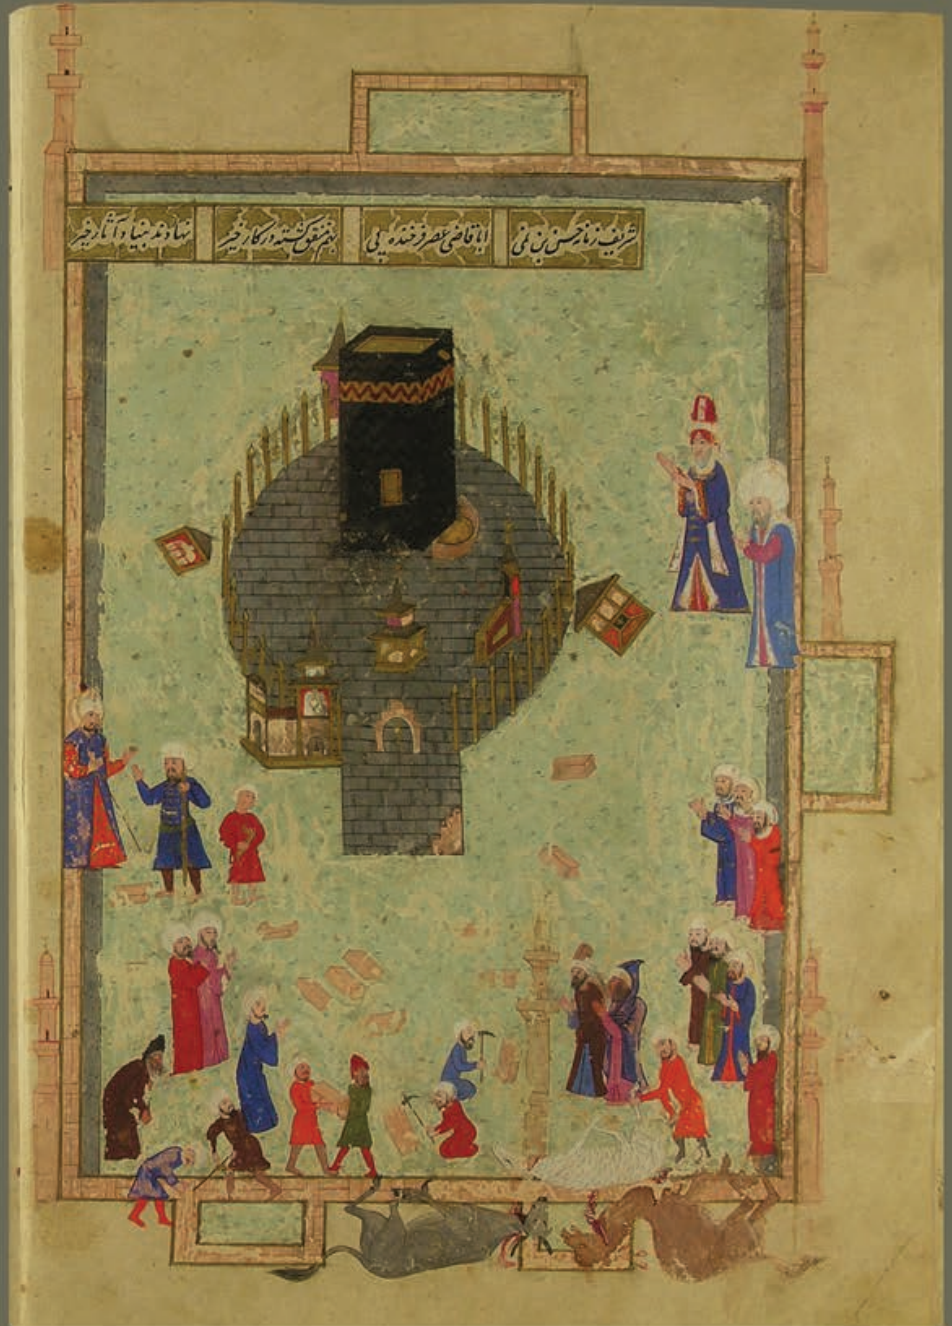 شریف زمانه حسن بن نمی ابا قاضی عصر فرخنده پی بهم متفق گشته در کار خیر نهادند بنیاد آثار خیر